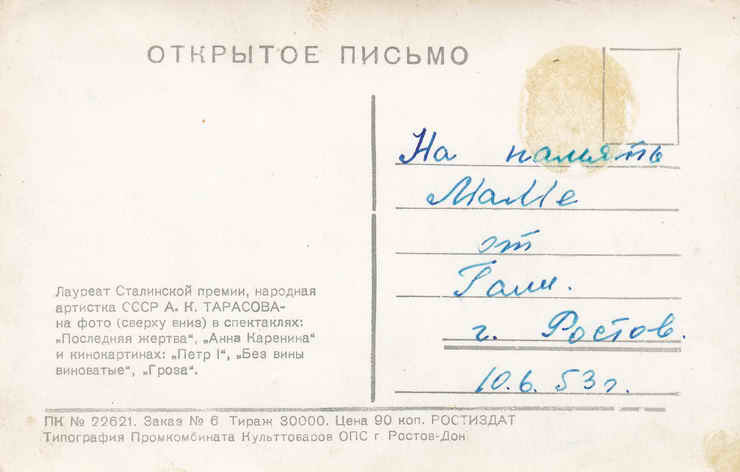 ОТКРЫТОЕ ПИСЬМО
На память
Маме
от
Гали.
г. Ростов.
10.6.53г.
Лауреат Сталинской премии, народная
артистка СССР А. К. ТАРАСОВА-
на фото (сверху вниз) в спектаклях:
„Последняя жертва“, „Анна Каренина“
и кинокартинах: „Петр I“, „Без вины
виноватые“, „Гроза“.
ПК № 22621. Заказ № 6 Тираж 30000. Цена 90 коп. РОСТИЗДАТ
Типография Промкомбината Культтоваров ОПС г Ростов-Дон